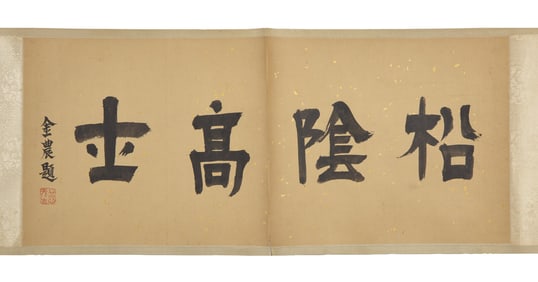 松陰高士
金農題